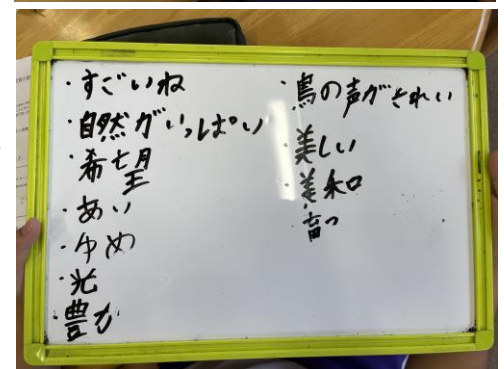 ・すごいね
・自然がいっぱい
・希望
・あい
・ゆめ
・光
・豊か
・鳥の声がきれい
・美しい
・美和